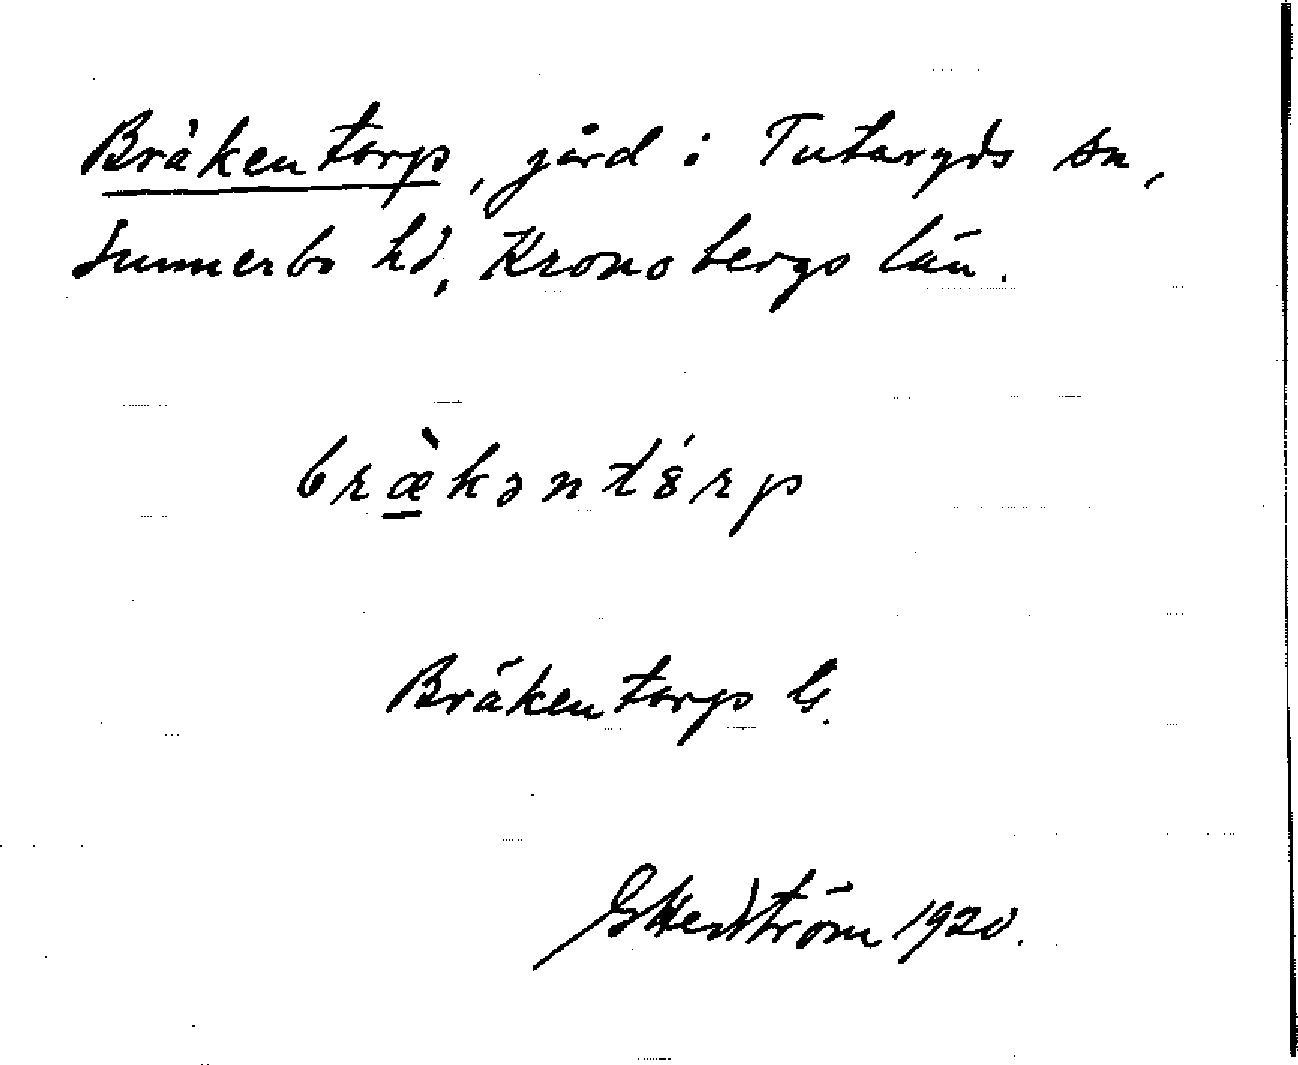 Bräkentorp, gård i Tutaryds sn,
Sunnerbo hd, Kronobergs län.
bræ̀kəntórp
Bräkentorp G.
G Hedström 1920.